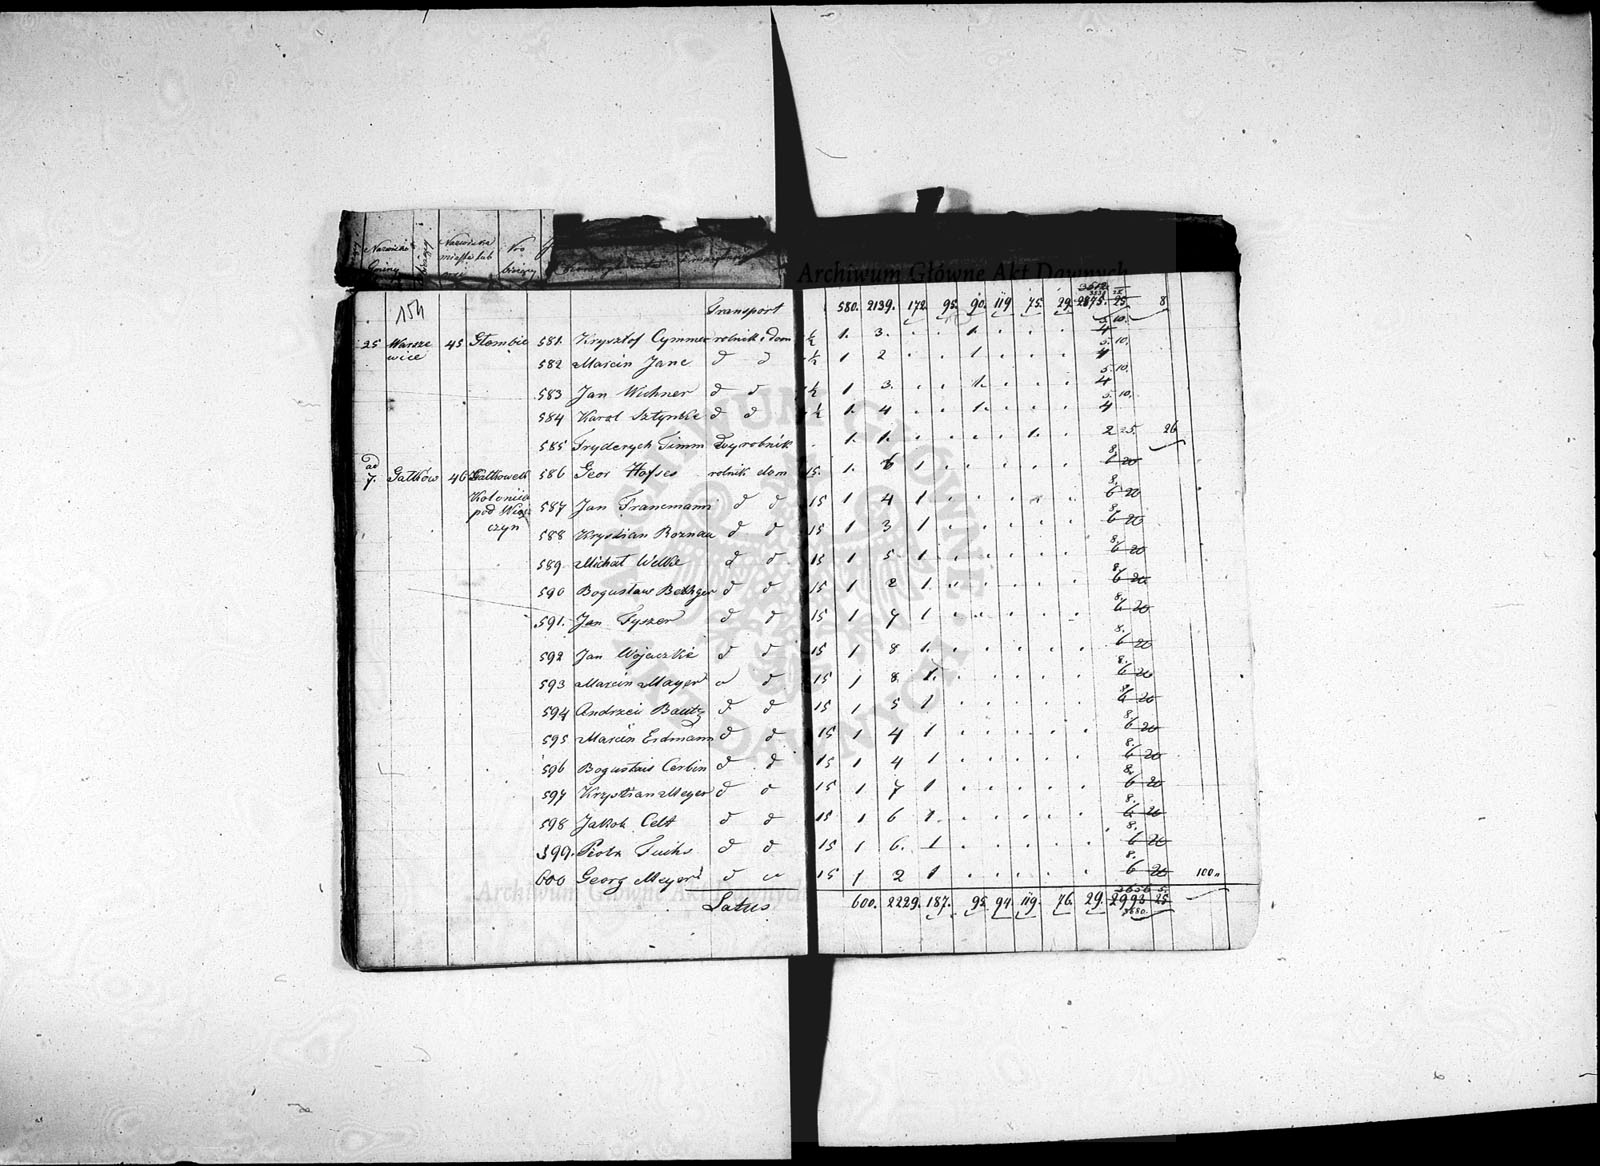 Nazwisko Gminy Nazwisko miasta lub wsi Nro bieżący
Archiwum Główne Akt Dawnych
154 Transport 580. 2139. 172. 95. 90. 119 75. 29. 2875. 25. 8
25 Warsze 45 Głombie 581. Krysztof Cymmer rolnik i dom ½ 1. 3. . . 1. . . . 4 5. 10.
wice 582 Marcin Jane d d ½ 1 2 . . 1 . . . 4 5. 10.
583 Jan Wichner d d ½ 1 3. . . 1. . . . 4 5. 10.
584 Karol d d ½ 1. 4 . . 1. . . . 4 5. 10.
585 Fryderych Timm Wyrobnik . 1. 1. . . . . 1. . 2 25. 26
ad 7. Gałków 46 Gałkowek 586 Geor Hofses rolnik dom 15. 1. 6 1 . . . . . 8. 6 20
Kolonia
pod Wią 587 Jan Francmann d d 15 1 4 1 . . . . . 8. 6 20
czyn
588 Krystian Roznau d d 15 1 3 1 . . . . . 8. 6 20
589. Michał Wilke d d 15 1 5 1 . . . . . 8. 6 20
590 Bogusław d d 15 1 2 1. . . . . . 8. 6 20
591. Jan Fyszer d d 15 1 7 1 . . . . . 8. 6 20
592 Jan Wojaczkie d d 15 1 8 1. . . . . . 8. 6 20
593 Marcin Mayer d d 15 1 8. 1. . . . . . 8. 6 20
594 Andrzei Bautz d d 15 1 5 1 . . . . . 8. 6 20
595 Marcin Erdmann d d 15 1 4 1 . . . . . 8. 6 20
596 Cerbin d d 15 1 4 1 . . . . . 8. 6 20
597 Krystian Meyer d d 15 1 7 1 . . . . . 8. 6 20
598 Jakob Celt d d 15 1 6 1. . . . . . 8. 6 20
599. Piotr Fuchs d d 15 1 6. 1 . . . . . 8. 6 20
600 Georg Meyer d d 15 1 2 1 . . . . . 8. 6 20 100
Archiwum Główne Akt Dawnych
Latus 600. 2229. 187. 95. 94. 119. 76. 29. 25